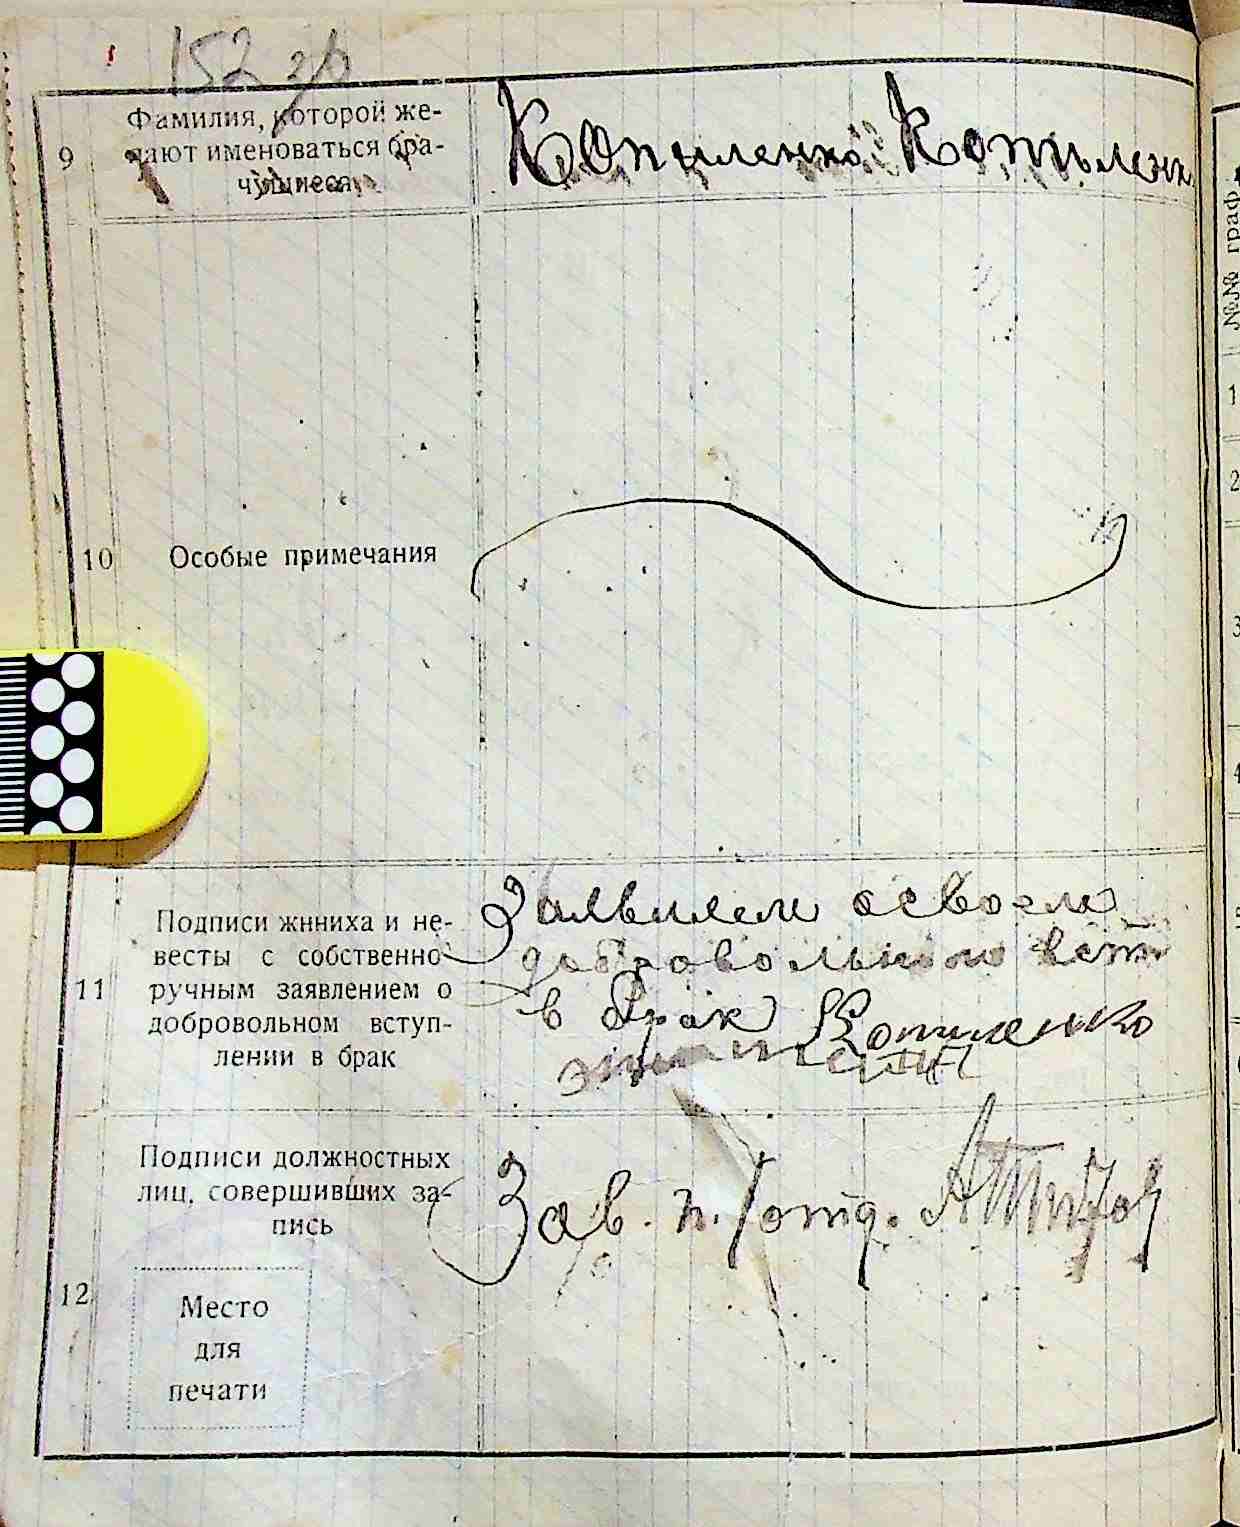 152 зв
9
Фамилия, которой же-
лают именоваться бра-
чущиеся
Копиленко Копиленк
10
Особые примечания
11
Подписи жнниха и не-
весты с собственно
ручным заявлением о
добровольном вступ-
лении в брак
Заявляем освоем
добровольном вст
в брак Копиленко
12
Подписи должностных
лиц, совершивших за-
пись
Зав. п/отд.
Место
для
печати
№№ граф
1
2
3
4
5